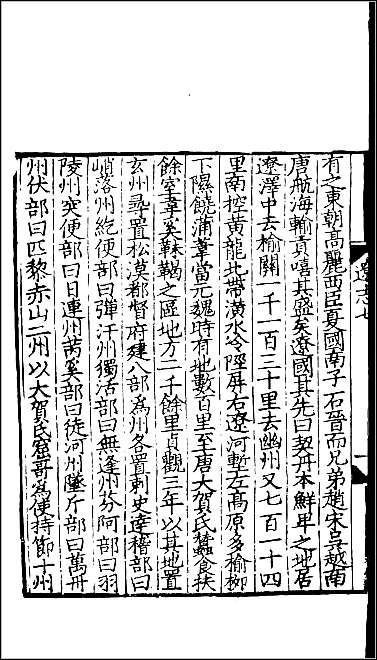 有之東朝高麗西臣夏國南子石晉而兄弟趙宋吳越南
唐航海輸貢嘻其盛矣遼國其先曰契丹本鮮卑之地居
遼澤中去榆關一千一百三十里去幽州又七百一十四
里南控黃龍北帶潢水冷陘屏右遼河塹左高原多榆柳
下隰饒蒲葦當元魏時有地數百里至唐大賀氏蠶食扶
餘室韋奚靺鞨之區地方二千餘里貞觀三年以其地置
玄州尋置松漠都督府建八部為州各置刺史達稽部曰
峭落州紇便部曰彈汗州獨活部曰無逢州芬阿部曰羽
陵州突便部曰日連州芮奚部曰徒河州墜斤部曰萬丹
州伏部曰匹黎赤山二州以大賀氏窟哥為使持節十州